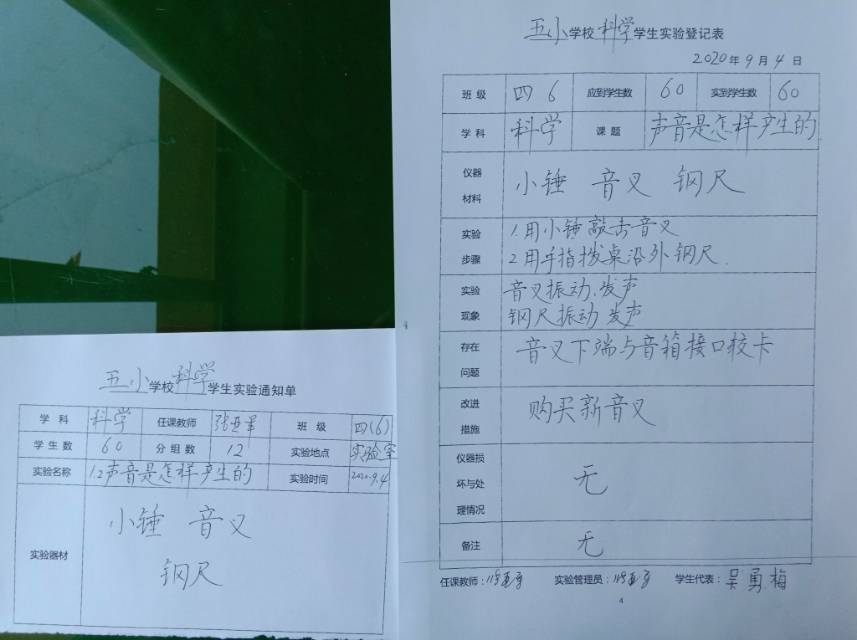 五小学校科学学生实验通知单
学科 科学 任课教师 班级 四(6)
学生数 60 分组数 12 实验地点 实验室
实验名称 1.2声音是怎样产生的 实验时间 2020.9.4
实验器材
小锤 音叉
钢尺
五小学校科学学生实验登记表
2020年9月4日
班级 四6 应到学生数 60 实到学生数 60
学科 科学 课题 声音是怎样产生的
仪器
材料
小锤 音叉 钢尺
实验
步骤
1.用小锤敲击音叉
2.用手指拨桌沿外钢尺
实验
现象
音叉振动.发声
钢尺振动 发声
存在
问题
音叉下端与音箱接口较卡
改进
措施
购买新音叉
仪器损
坏与处
理情况
无
备注 无
任课教师: 实验管理员: 学生代表:吴勇梅
4